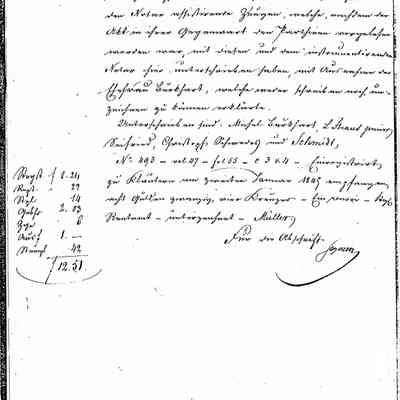 den Notar assistirende Zeugen, welche, nachdem der
Akt in ihrer Gegenwart den Partheien vorgelesen
worden war, mit diesen und dem instrumentirenden
Notar hier unterschrieben haben, mit Ausnahme der
Ehefrau Burkhart, welche weder schreiben noch unter-
zeichnen zu können erklärte.
Unterschrieben sind: Michel Burkhart, L. Straus junior,
Seifried, Christoph Schwerdes und Schmidt,
No 493 - vol. 27 - fol. 55 - c 3 & 4 - Einregistrirt
zu Kandern am zweiten Januar 1845 empfangen
acht Gulden zwanzig vier Kreuzer - Ein
Rentamt - unterzeichnet - Müller,
Für die Abschrift
Regst f 8. 24
29
14
Gebhr 2. 13
6
Ausf 1. -
Stempl 42
f 12. 51.